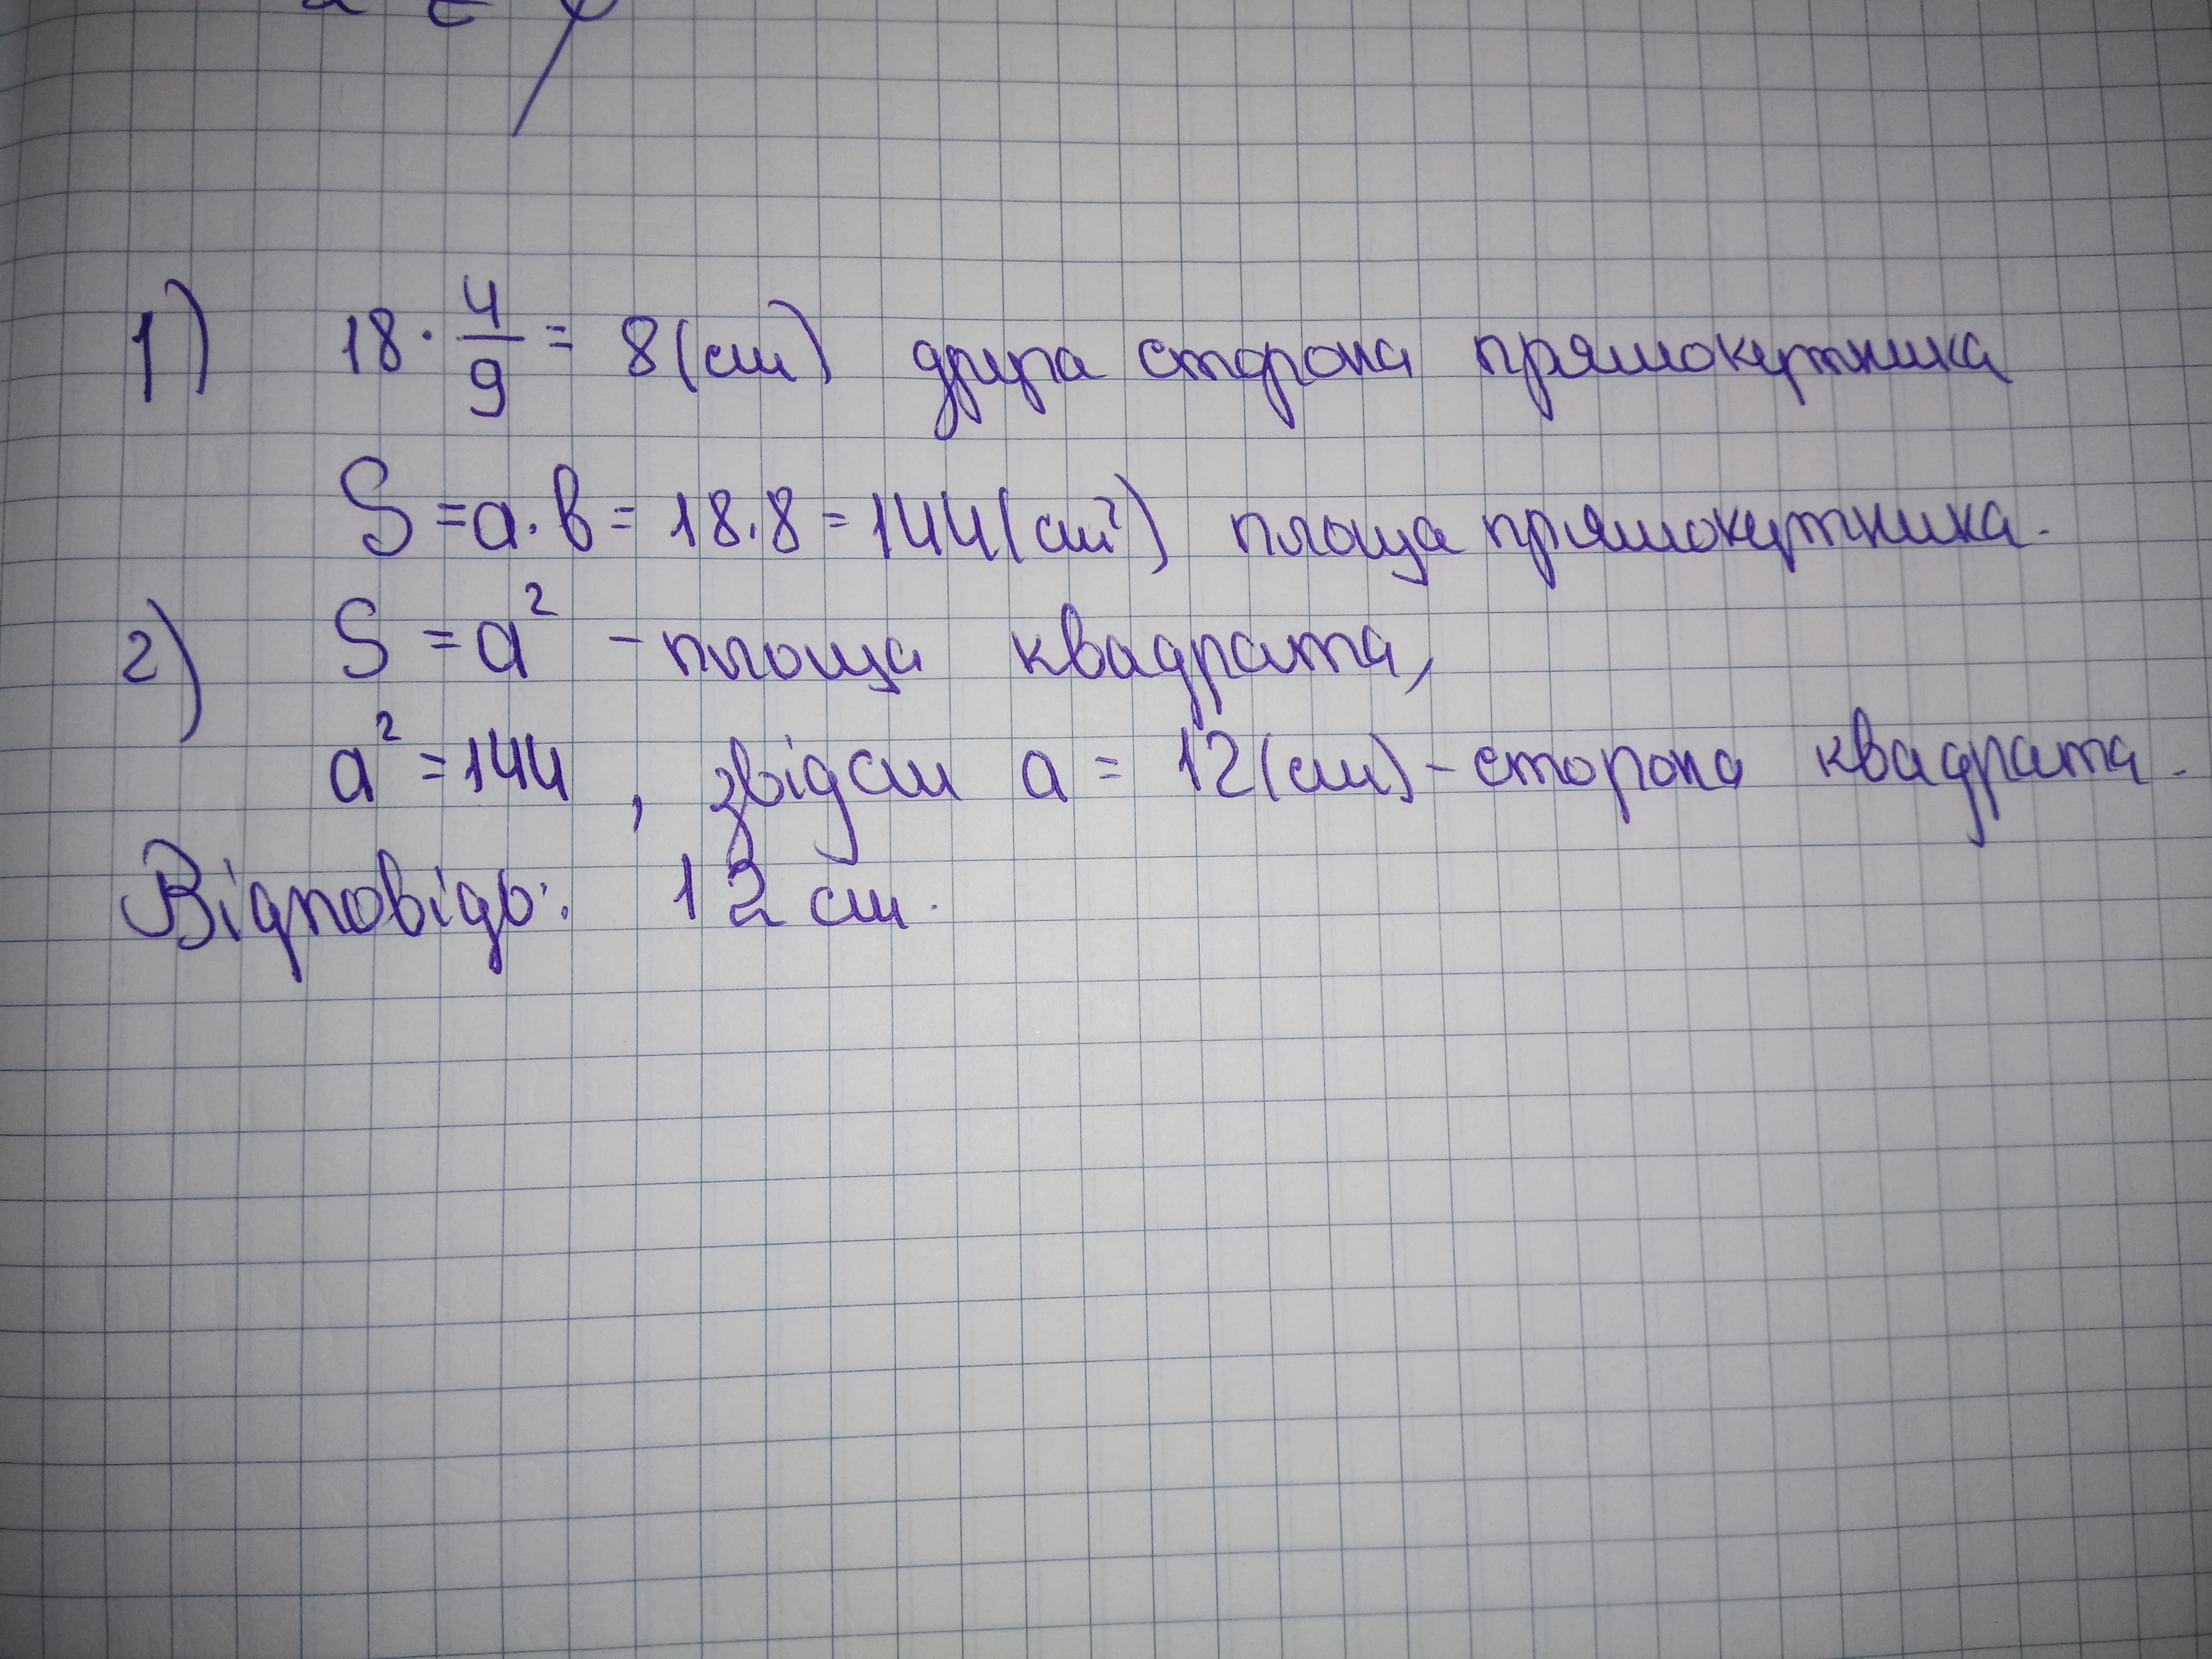 1) 18 · 4/9 = 8 (см) друга сторона прямокутника
S = a · b = 18 · 8 = 144 (см²) площа прямокутника.
2) S = a² – площа квадрата,
a² = 144 , звідси a = 12 (см) – сторона квадрата.
Відповідь: 12 см.